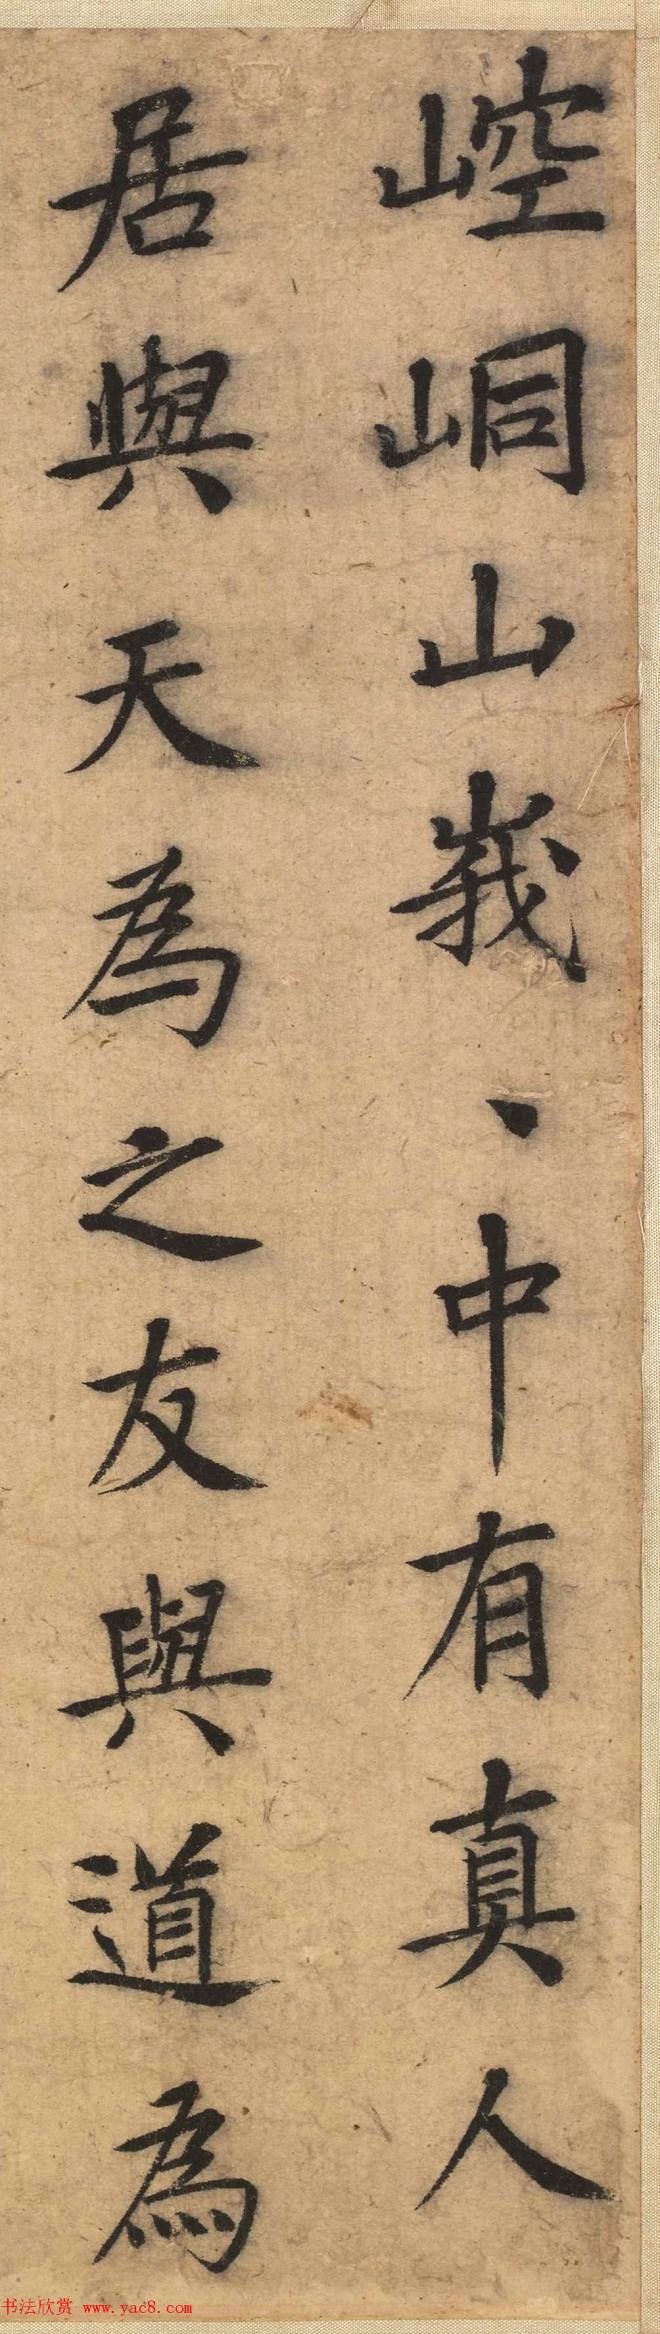 崆峒山峩、中有真人
居與天為之友與道為
书法欣赏 www.yac8.com